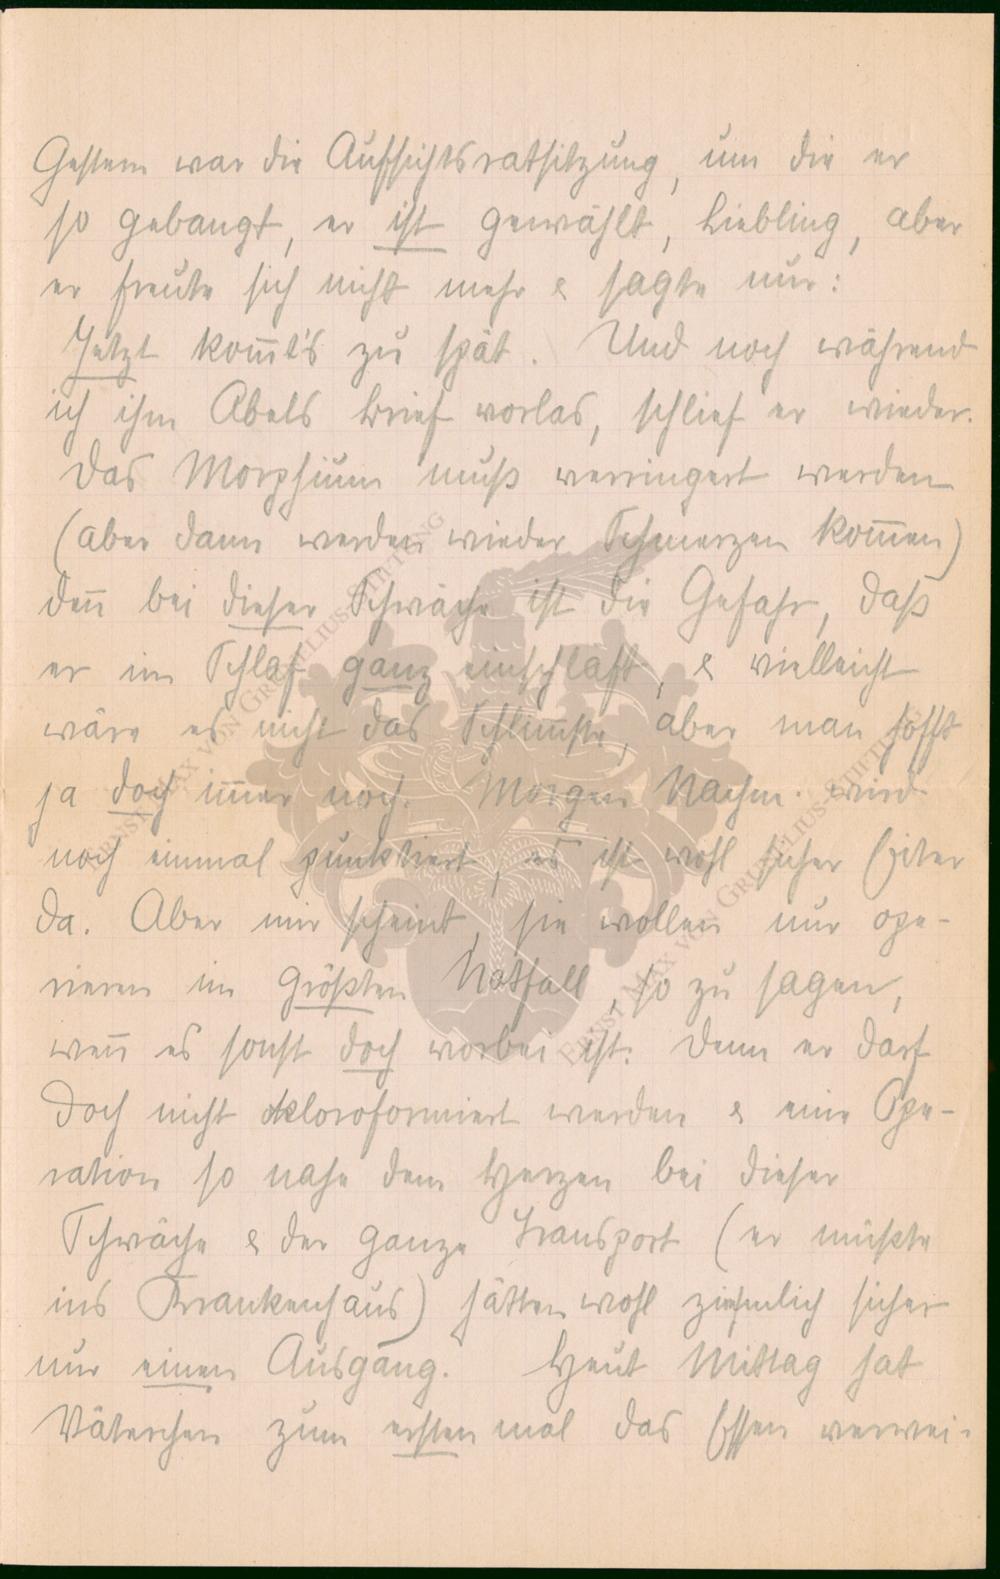 Gestern war die Aufsichtsratsitzung, um die er
so gebangt, er ist gewählt, Liebling, aber
er freute sich nicht mehr & sagte nur:
Jetzt kom̅t's zu spät. Und noch während
ich ihm Abels Brief vorlas, schlief er wieder.
Das Morphium muß verringert werden
(aber dann werden wieder Schmerzen kom̅en)
den̅ bei dieser Schwäche ist die Gefahr, daß
er im Schlaf ganz einschlaft, & vielleicht
wäre es nicht das Schlim̅ste, aber man hofft
ja doch im̅er noch. Morgen Nachm. wird
noch einmal punktiert, es ist wohl sicher Eiter
da. Aber mir scheint, sie wollen nur ope-
rieren im größten Notfall, so zu sagen,
wen̅ es sonst doch vorbei ist. Denn er darf
doch nicht chloroformiert werden & eine Ope-
ration so nahe dem Herzen bei dieser
Schwäche & der ganze Transport (er müßte
ins Krankenhaus) hätten wohl ziemlich sicher
nur einen Ausgang. Heut Mittag hat
Väterchen zum ersten mal das Essen verwei-
ERNST MAX VON GRUNELIUS-STIFTUNG
ERNST MAX VON GRUNELIUS-STIFTUNG